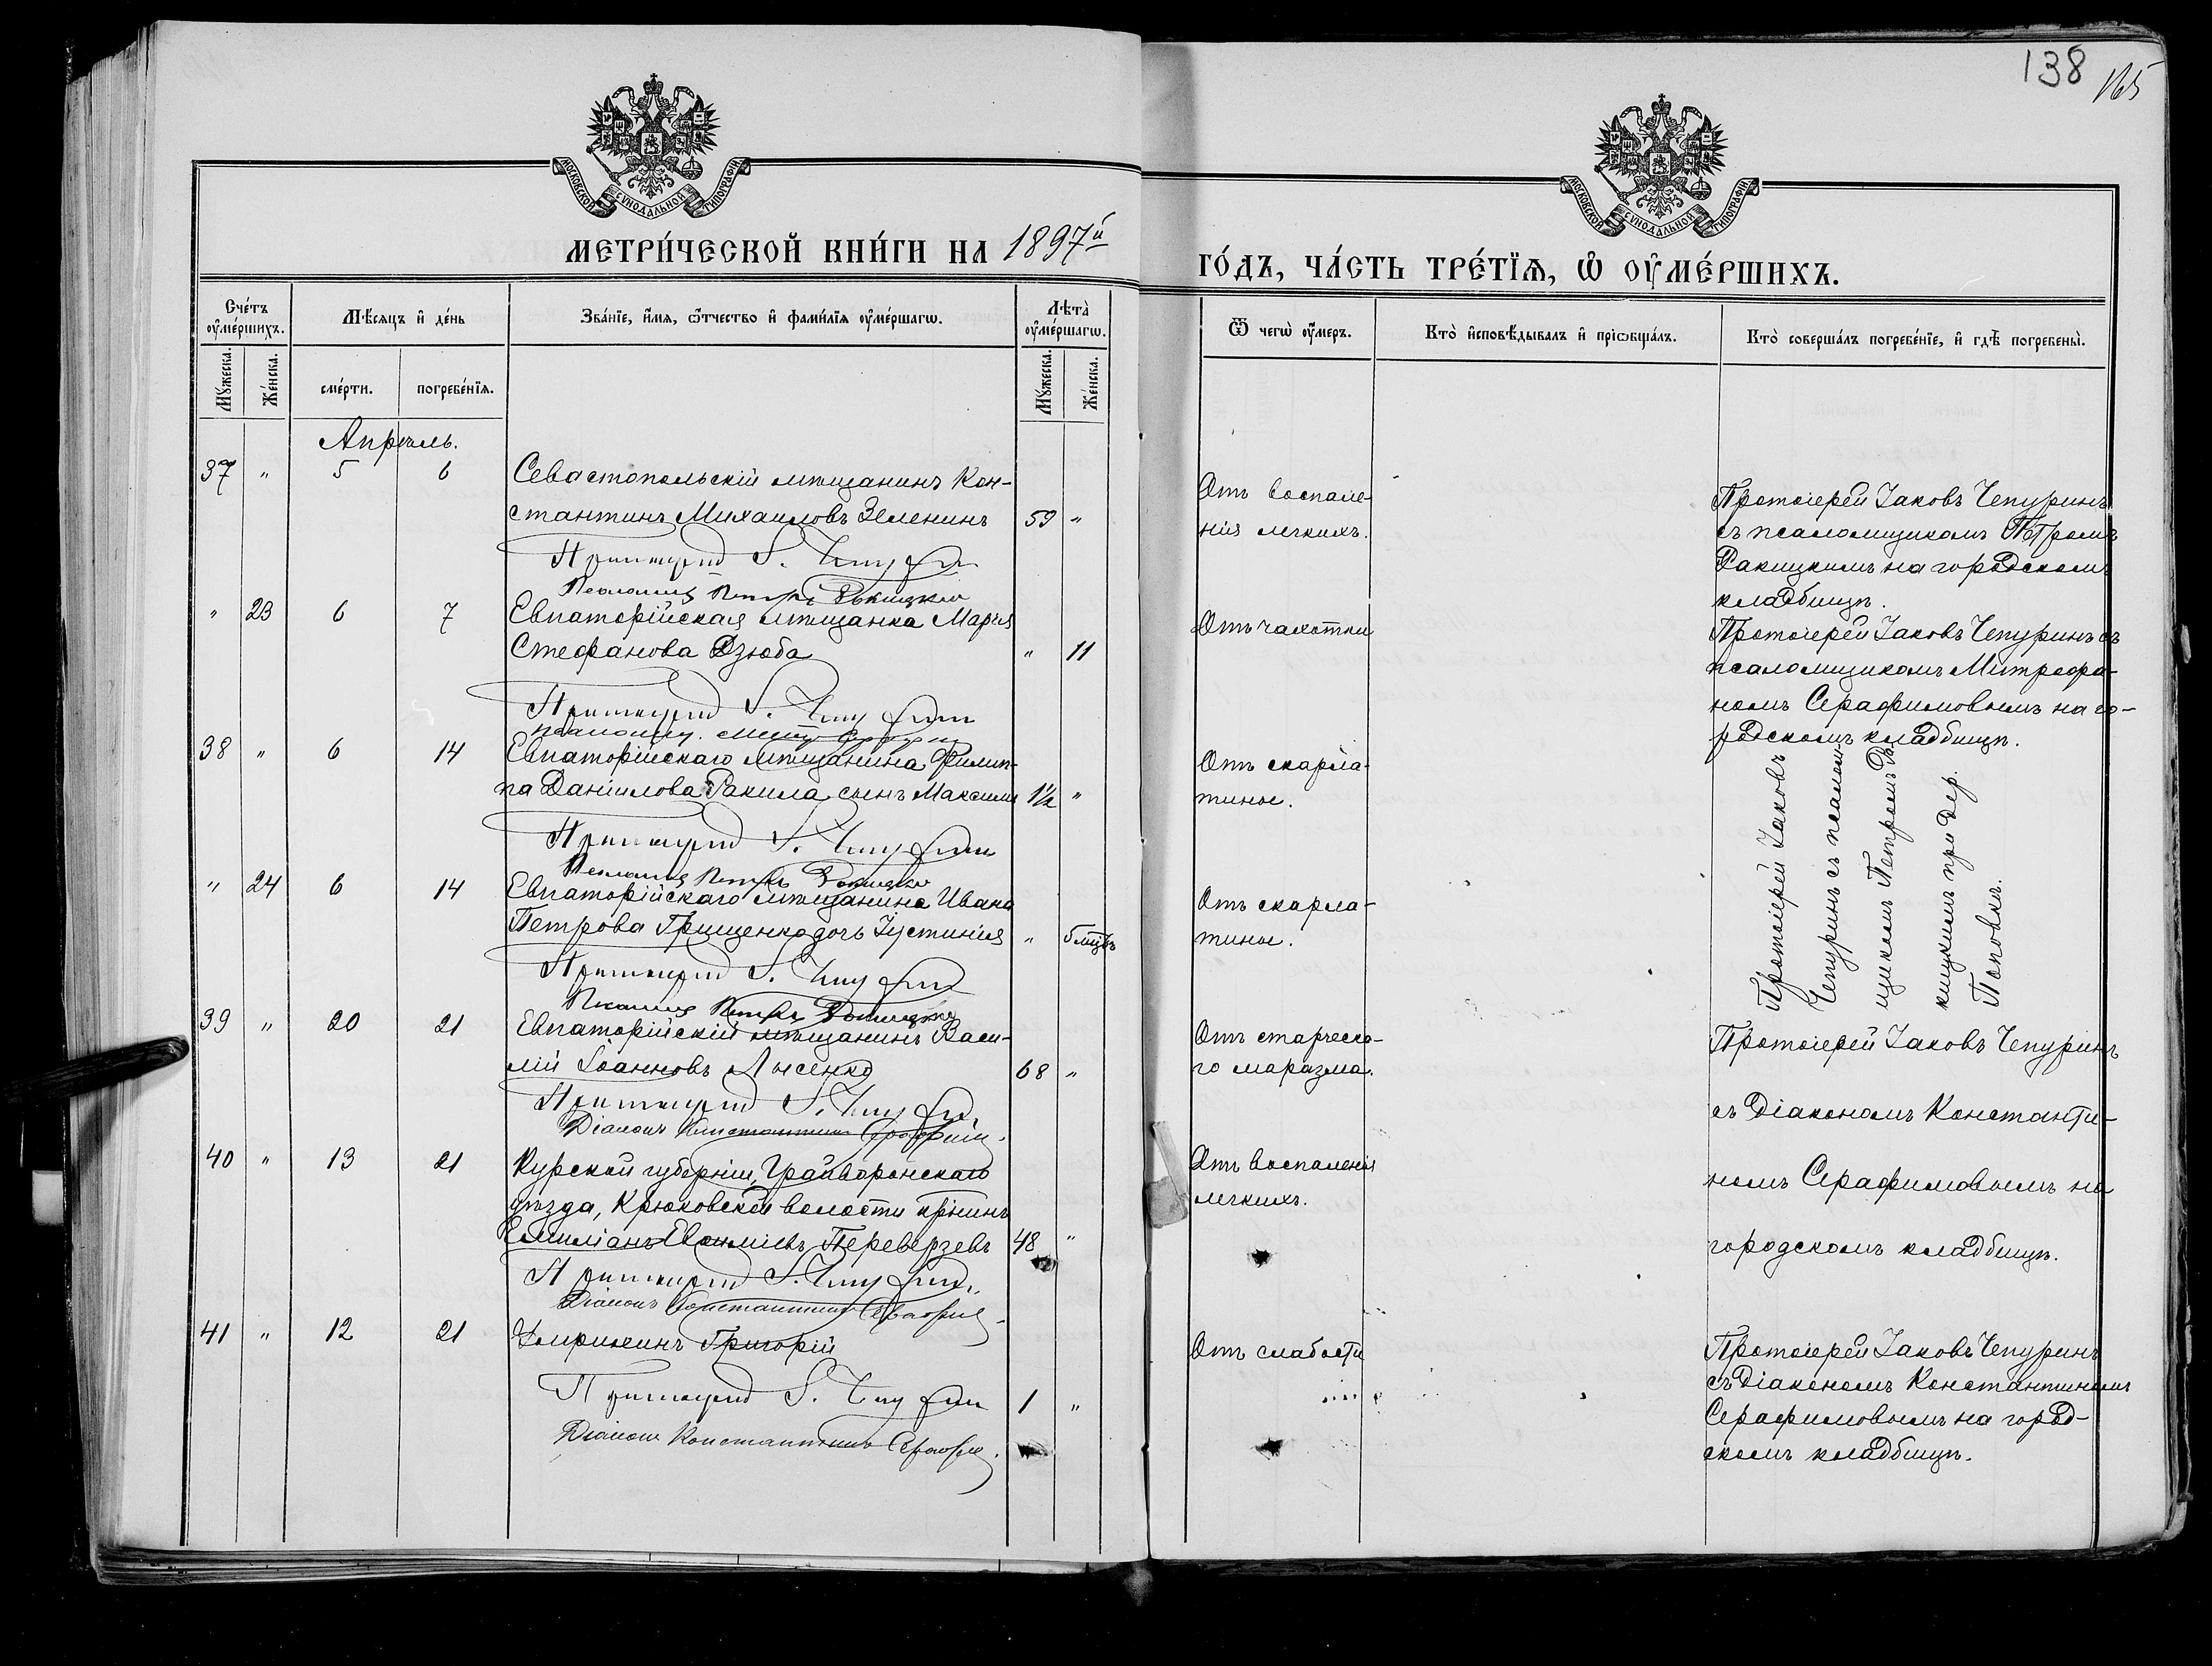 138
165
МОСКОВСКОЙ СУНОДАЛЬНОЙ ТИПОГРАФІИ
МОСКОВСКОЙ СУНОДАЛЬНОЙ ТИПОГРАФІИ
МЕТРИ́ЧЕСКОЙ КНИ́ГИ НА 1897й
ГО́ДЪ, ЧА́СТЬ ТРЕ́ТЇѦ, Ѡ҆ ОУ҆МЕ́РШИХЪ.
Сче́тъ оу҆ме́ршихъ.
Мꙋжеска.
Же́нска.
Мѣсѧцъ и҆ де́нь
сме́рти.
погребе́нїѧ.
Зва́нїе, и҆́мѧ, ѻ҆́тчество и҆ фами́лїѧ оу҆ме́ршагѡ.
Лѣта̀ оу҆ме́ршагѡ.
Мꙋжеска.
Же́нска.
Ѿ чегѡ̀ оу҆́меръ.
Кто̀ и҆сповѣ́дывалъ и҆ прїѡбща́лъ.
Кто̀ соверша́лъ погребе́нїе, и҆ гдѣ̀ погребены̀.
Апрѣль.
37 " 5 6 Севастопольскій мѣщанинъ Кон-
стантинъ Михаиловъ Зеленинъ 59 "
Протоіерей І. Чепуринъ
Псаломщ Петръ Ракицкій
Отъ воспале-
нія легкихъ.
Протоіерей Іаковъ Чепуринъ
съ псаломщикомъ Петромъ
Ракицкимъ на городскомъ
кладбищѣ.
" 23 6 7 Евпаторійская мѣщанка Марія
Стефанова Дзюба " 11
Протоіерей І. Чепуринъ
псаломщ.
Отъ чахотки
Протоіерей Іаковъ Чепуринъ съ
псаломщикомъ Митрофа-
номъ Серафимовымъ на го-
родскомъ кладбищѣ.
38 " 6 14 Евпаторійскаго мѣщанина Филип-
па Даніилова Ракила сынъ Максимъ 1½ "
Протоіерей І. Чепуринъ
Псаломщ Петръ Ракицкій
Отъ скарла-
тины.
Протоіерей Іаковъ
Чепуринъ съ псалом-
щикомъ Петромъ Ра-
кицкимъ при дер.
Поповкѣ.
" 24 6 14 Евпаторійскаго мѣщанина Ивана
Петрова Грищенко дочь Іустинія " 5 мцвъ
Протоіерей І. Чепуринъ
Псаломщ Петръ Ракицкій
Отъ скарла-
тины.
39 " 20 21 Евпаторійскій мѣщанинъ Васи-
лій Іоанновъ Лысенко 68 "
Протоіерей І. Чепуринъ
Діаконъ Константинъ Серафим.
Отъ старческа-
го маразма.
Протоіерей Іаковъ Чепуринъ
съ Діакономъ Константи-
номъ Серафимовымъ на
городскомъ кладбищѣ.
40 " 13 21 Курской губерніи, Грайворонскаго
уѣзда, Крюковской волости крнинъ
Емиліанъ Евѳиміевъ Переверзевъ 48 "
Протоіерей І. Чепуринъ
Діаконъ Константинъ Серафим.
Отъ воспаленія
легкихъ.
41 " 12 21 Григорій
Протоіерей І. Чепуринъ 1 "
Діаконъ Константинъ Серафим.
Отъ слабости
Протоіерей Іаковъ Чепуринъ
съ Діакономъ Константиномъ
Серафимовымъ на город-
скомъ кладбищѣ.